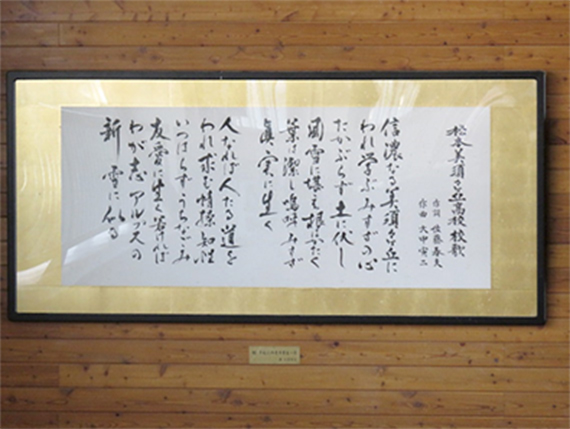 松本美須々ヶ丘高校校歌
作詞 佐藤春夫
作曲 大中寅二
信濃なる美須々ヶ丘に
われ学ぶみすずの心
たかぶらず土に伏し
風雪に堪え根はかたく
葉は潔し嗚呼みすず
眞実に生く
人なれば人たる道を
われ求む情操知性
いつはらずうちなごみ
友愛に生く若ければ
わが志アルプスの
新雪に似る